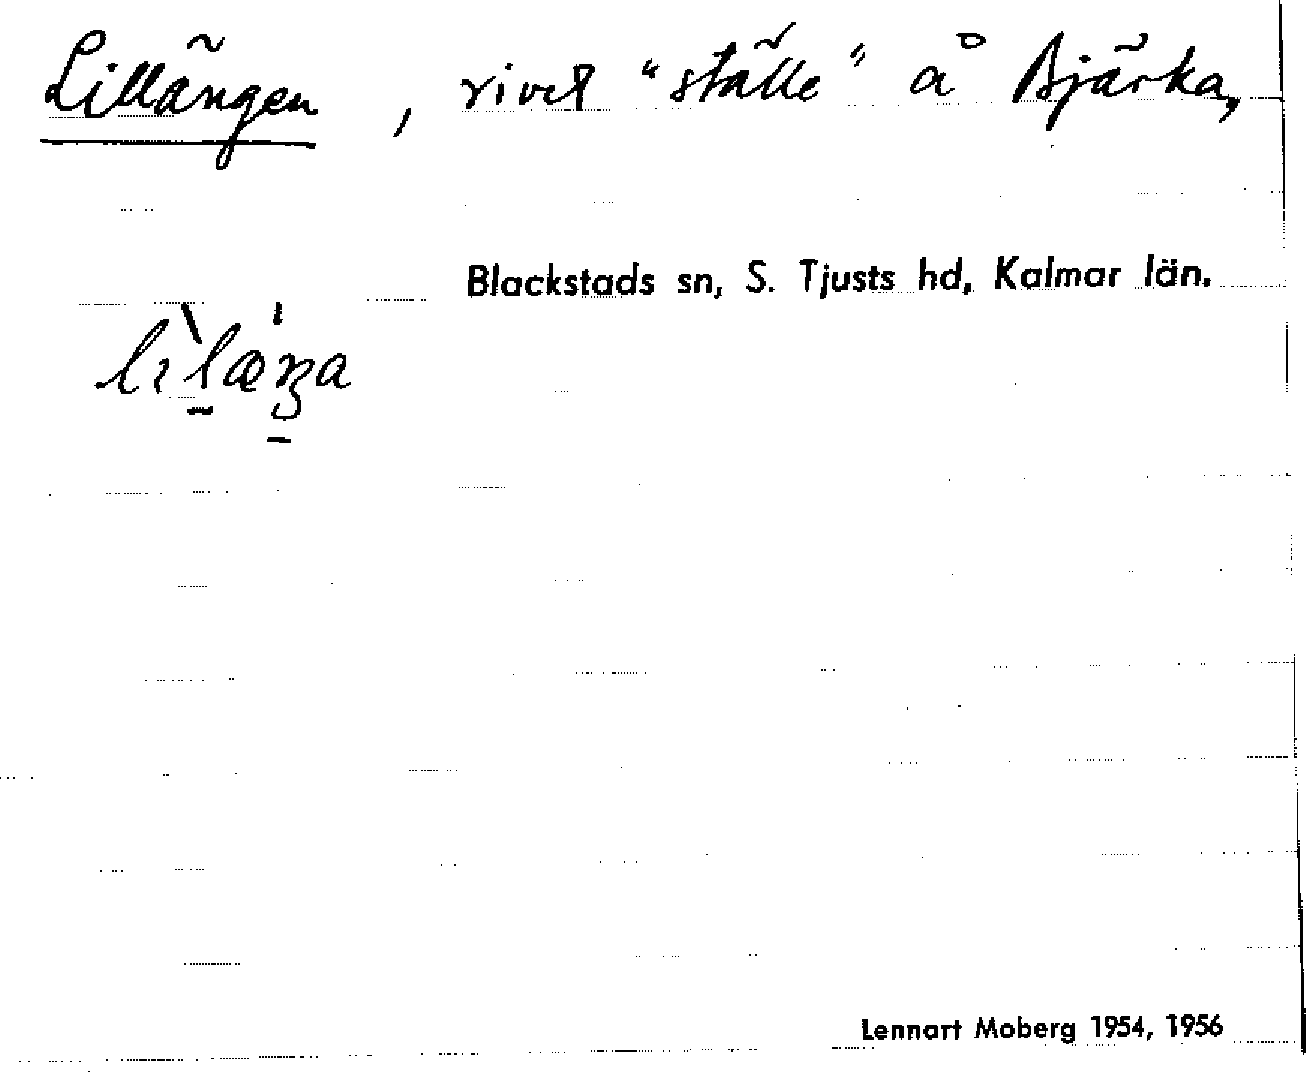 Lillängen, rivet "ställe" å Bjärka,
Blackstads sn, S. Tjusts hd, Kalmar län.
Lennart Moberg 1954, 1956